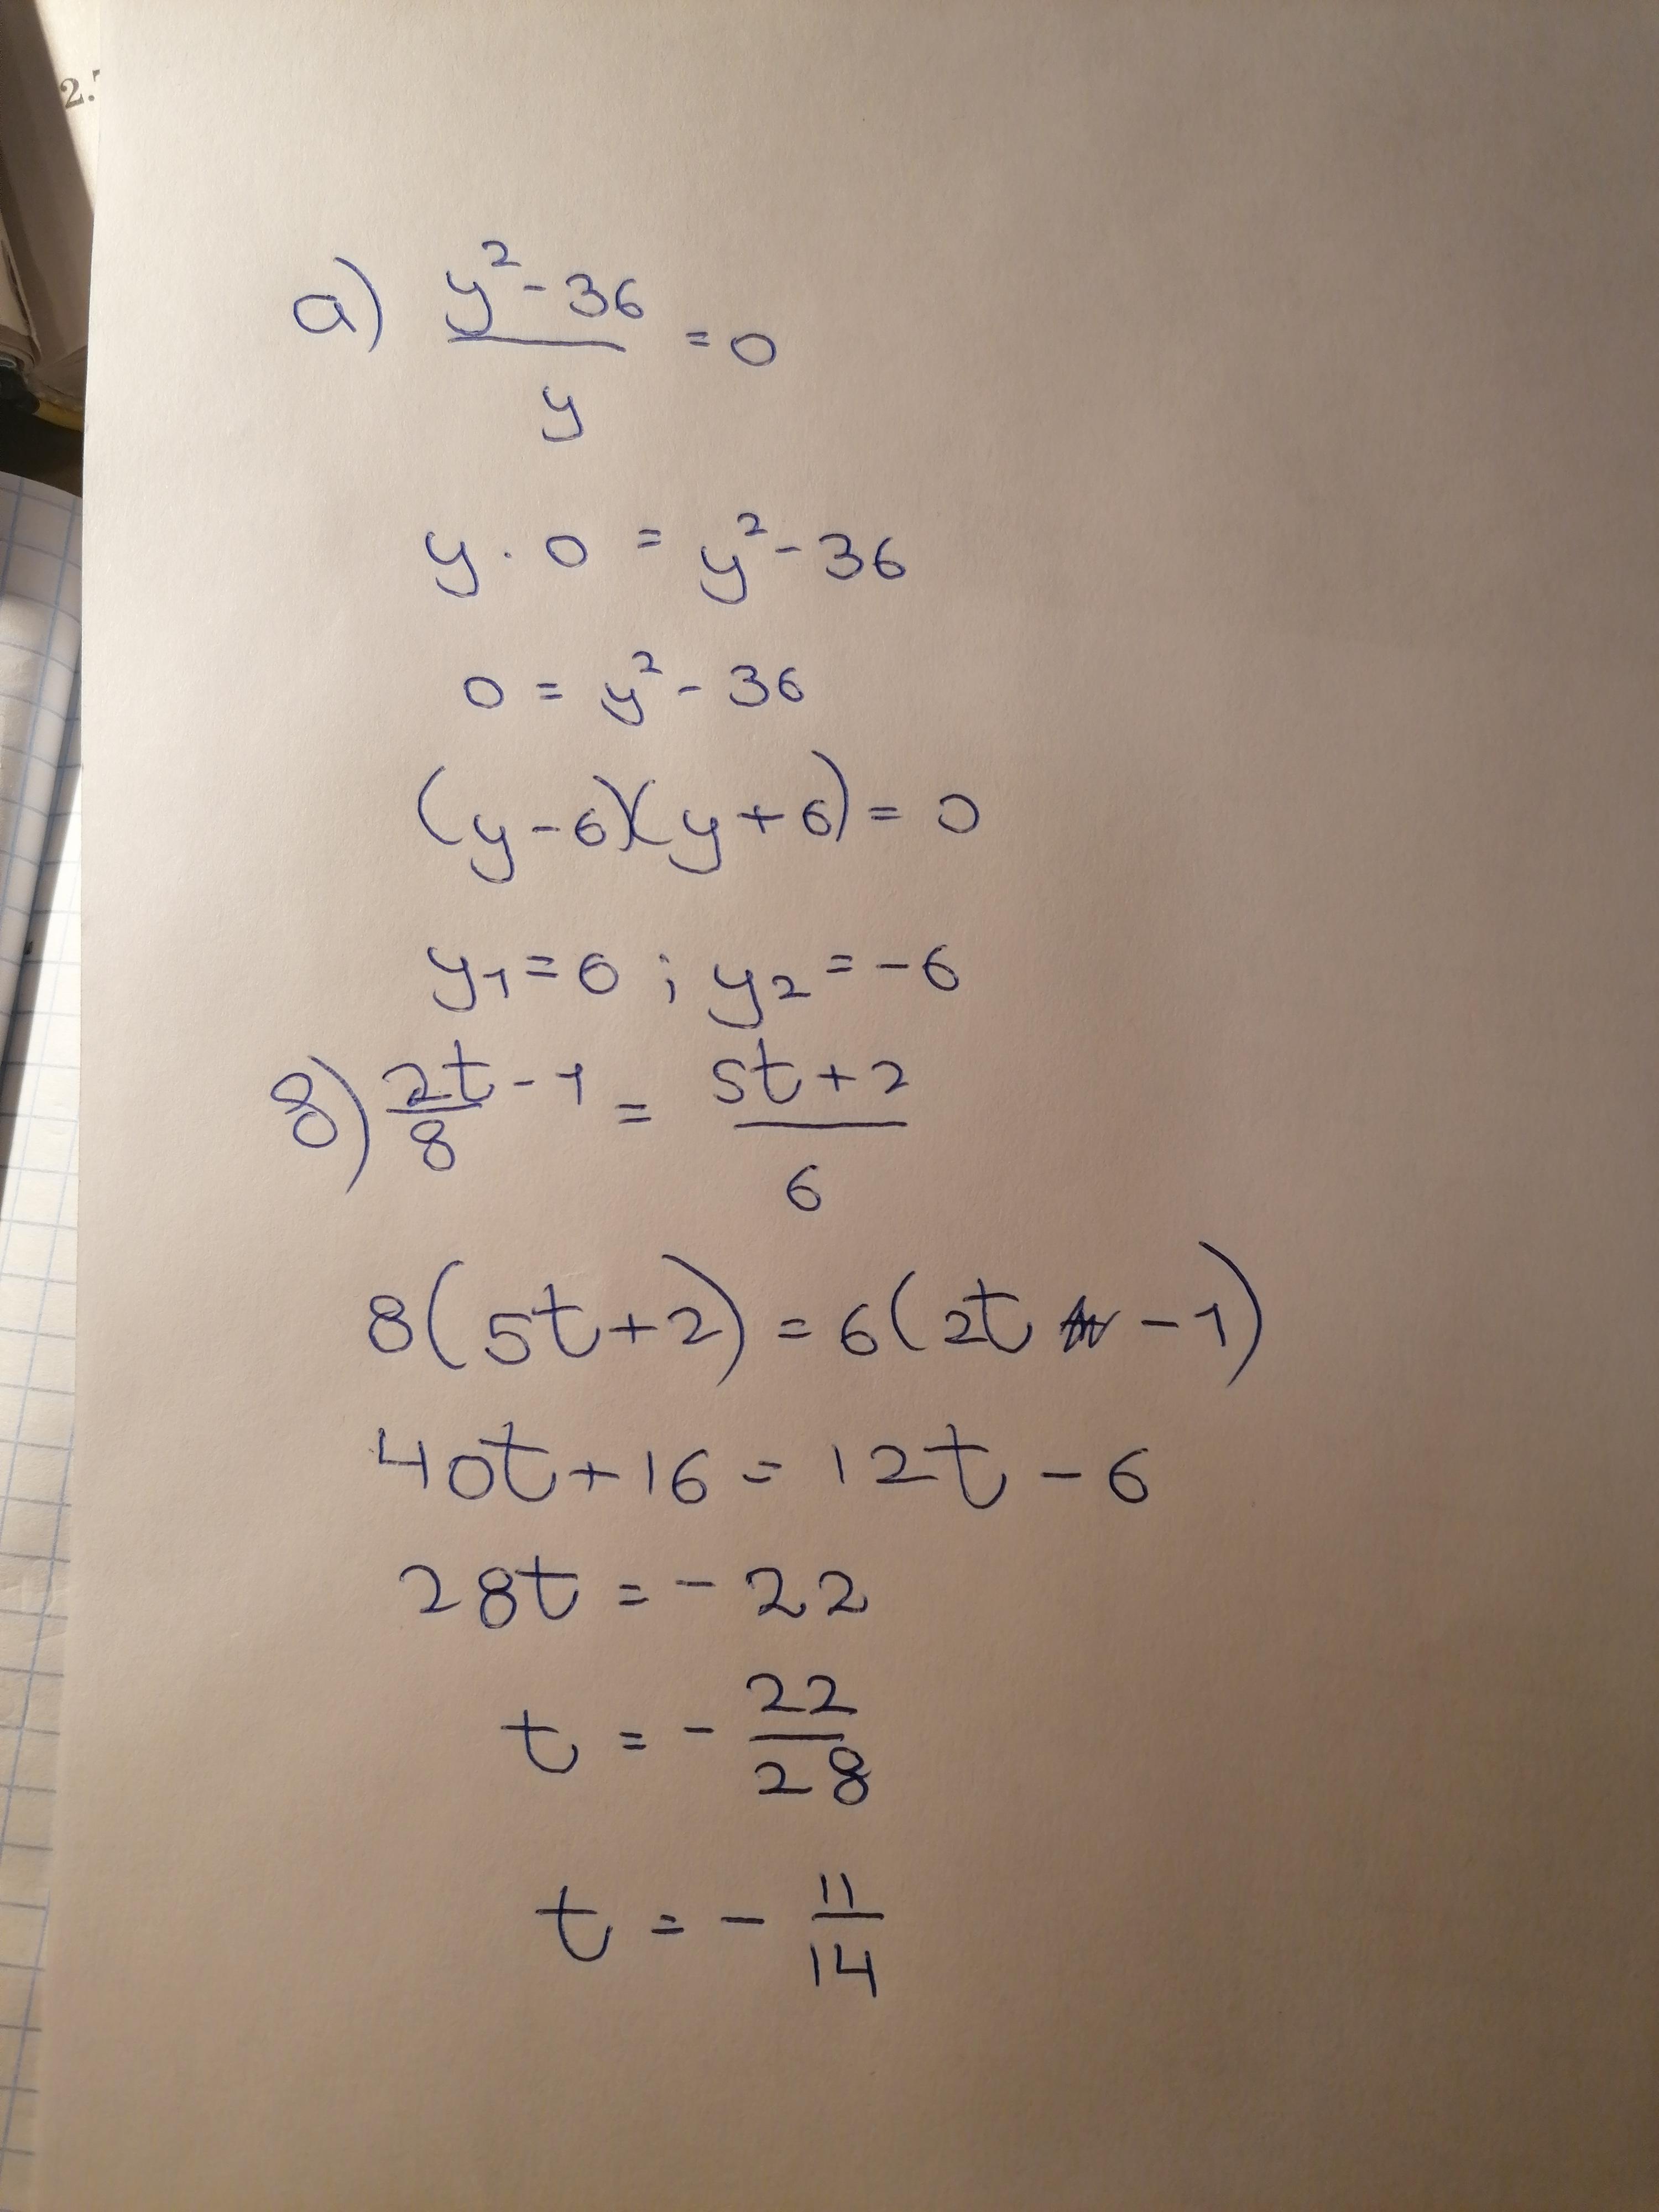 2.
а) y² - 36 / y = 0
y · 0 = y² - 36
0 = y² - 36
(y-6)(y+6) = 0
y₁ = 6 ; y₂ = -6
в) 2t/8 - 1 = 5t+2 / 6
8(5t+2) = 6(2t - 1)
40t + 16 = 12t - 6
28t = - 22
t = - 22/28
t = - 11/14